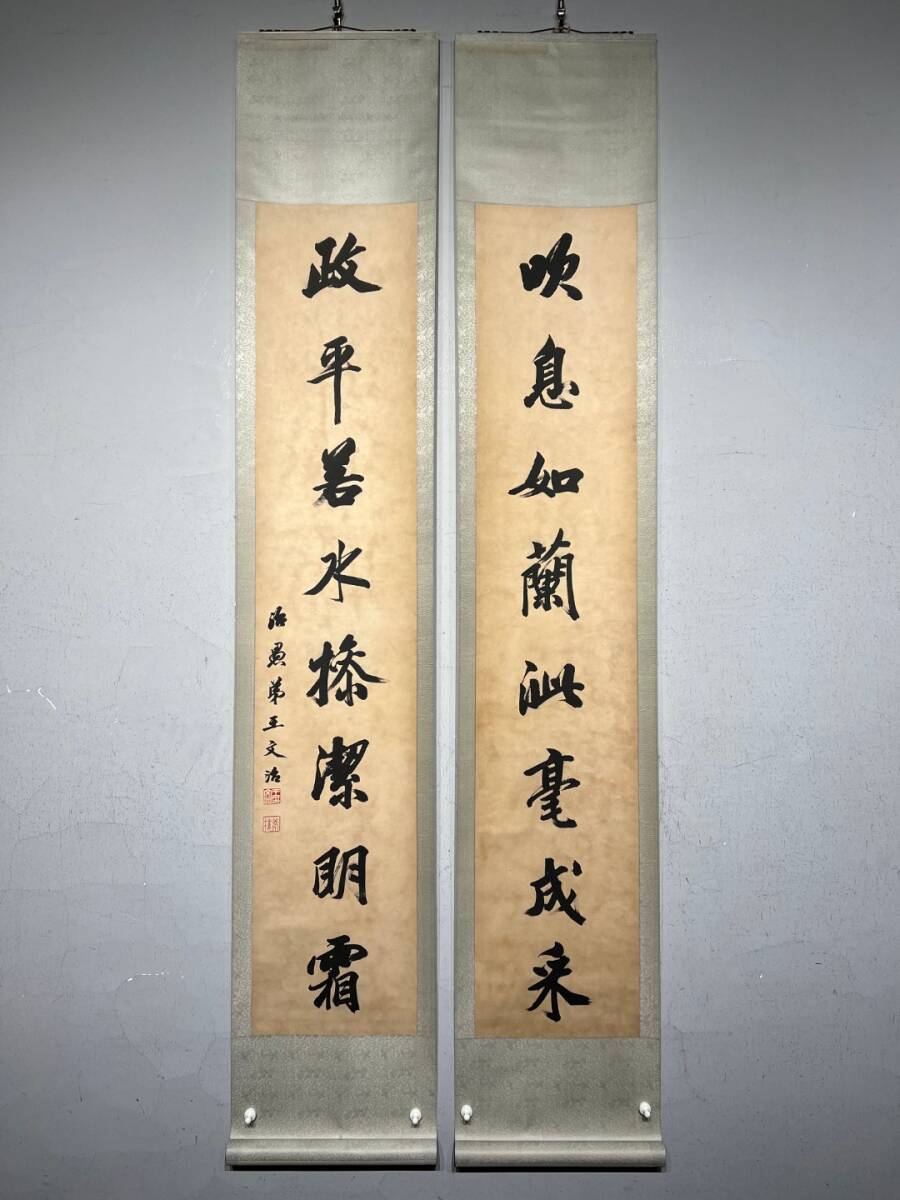 吹息如蘭泚毫成采
政平若水操潔明霜
治愚弟王文治